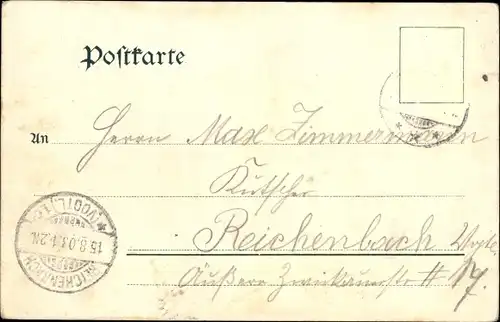 Postkarte
An
Herrn Max Zimmermann
Kutscher
Reichenbach Vogtl.
Äußere Zwickauerstr # 17.
REICHENBACH
(VOGTL.)
15.8.03.